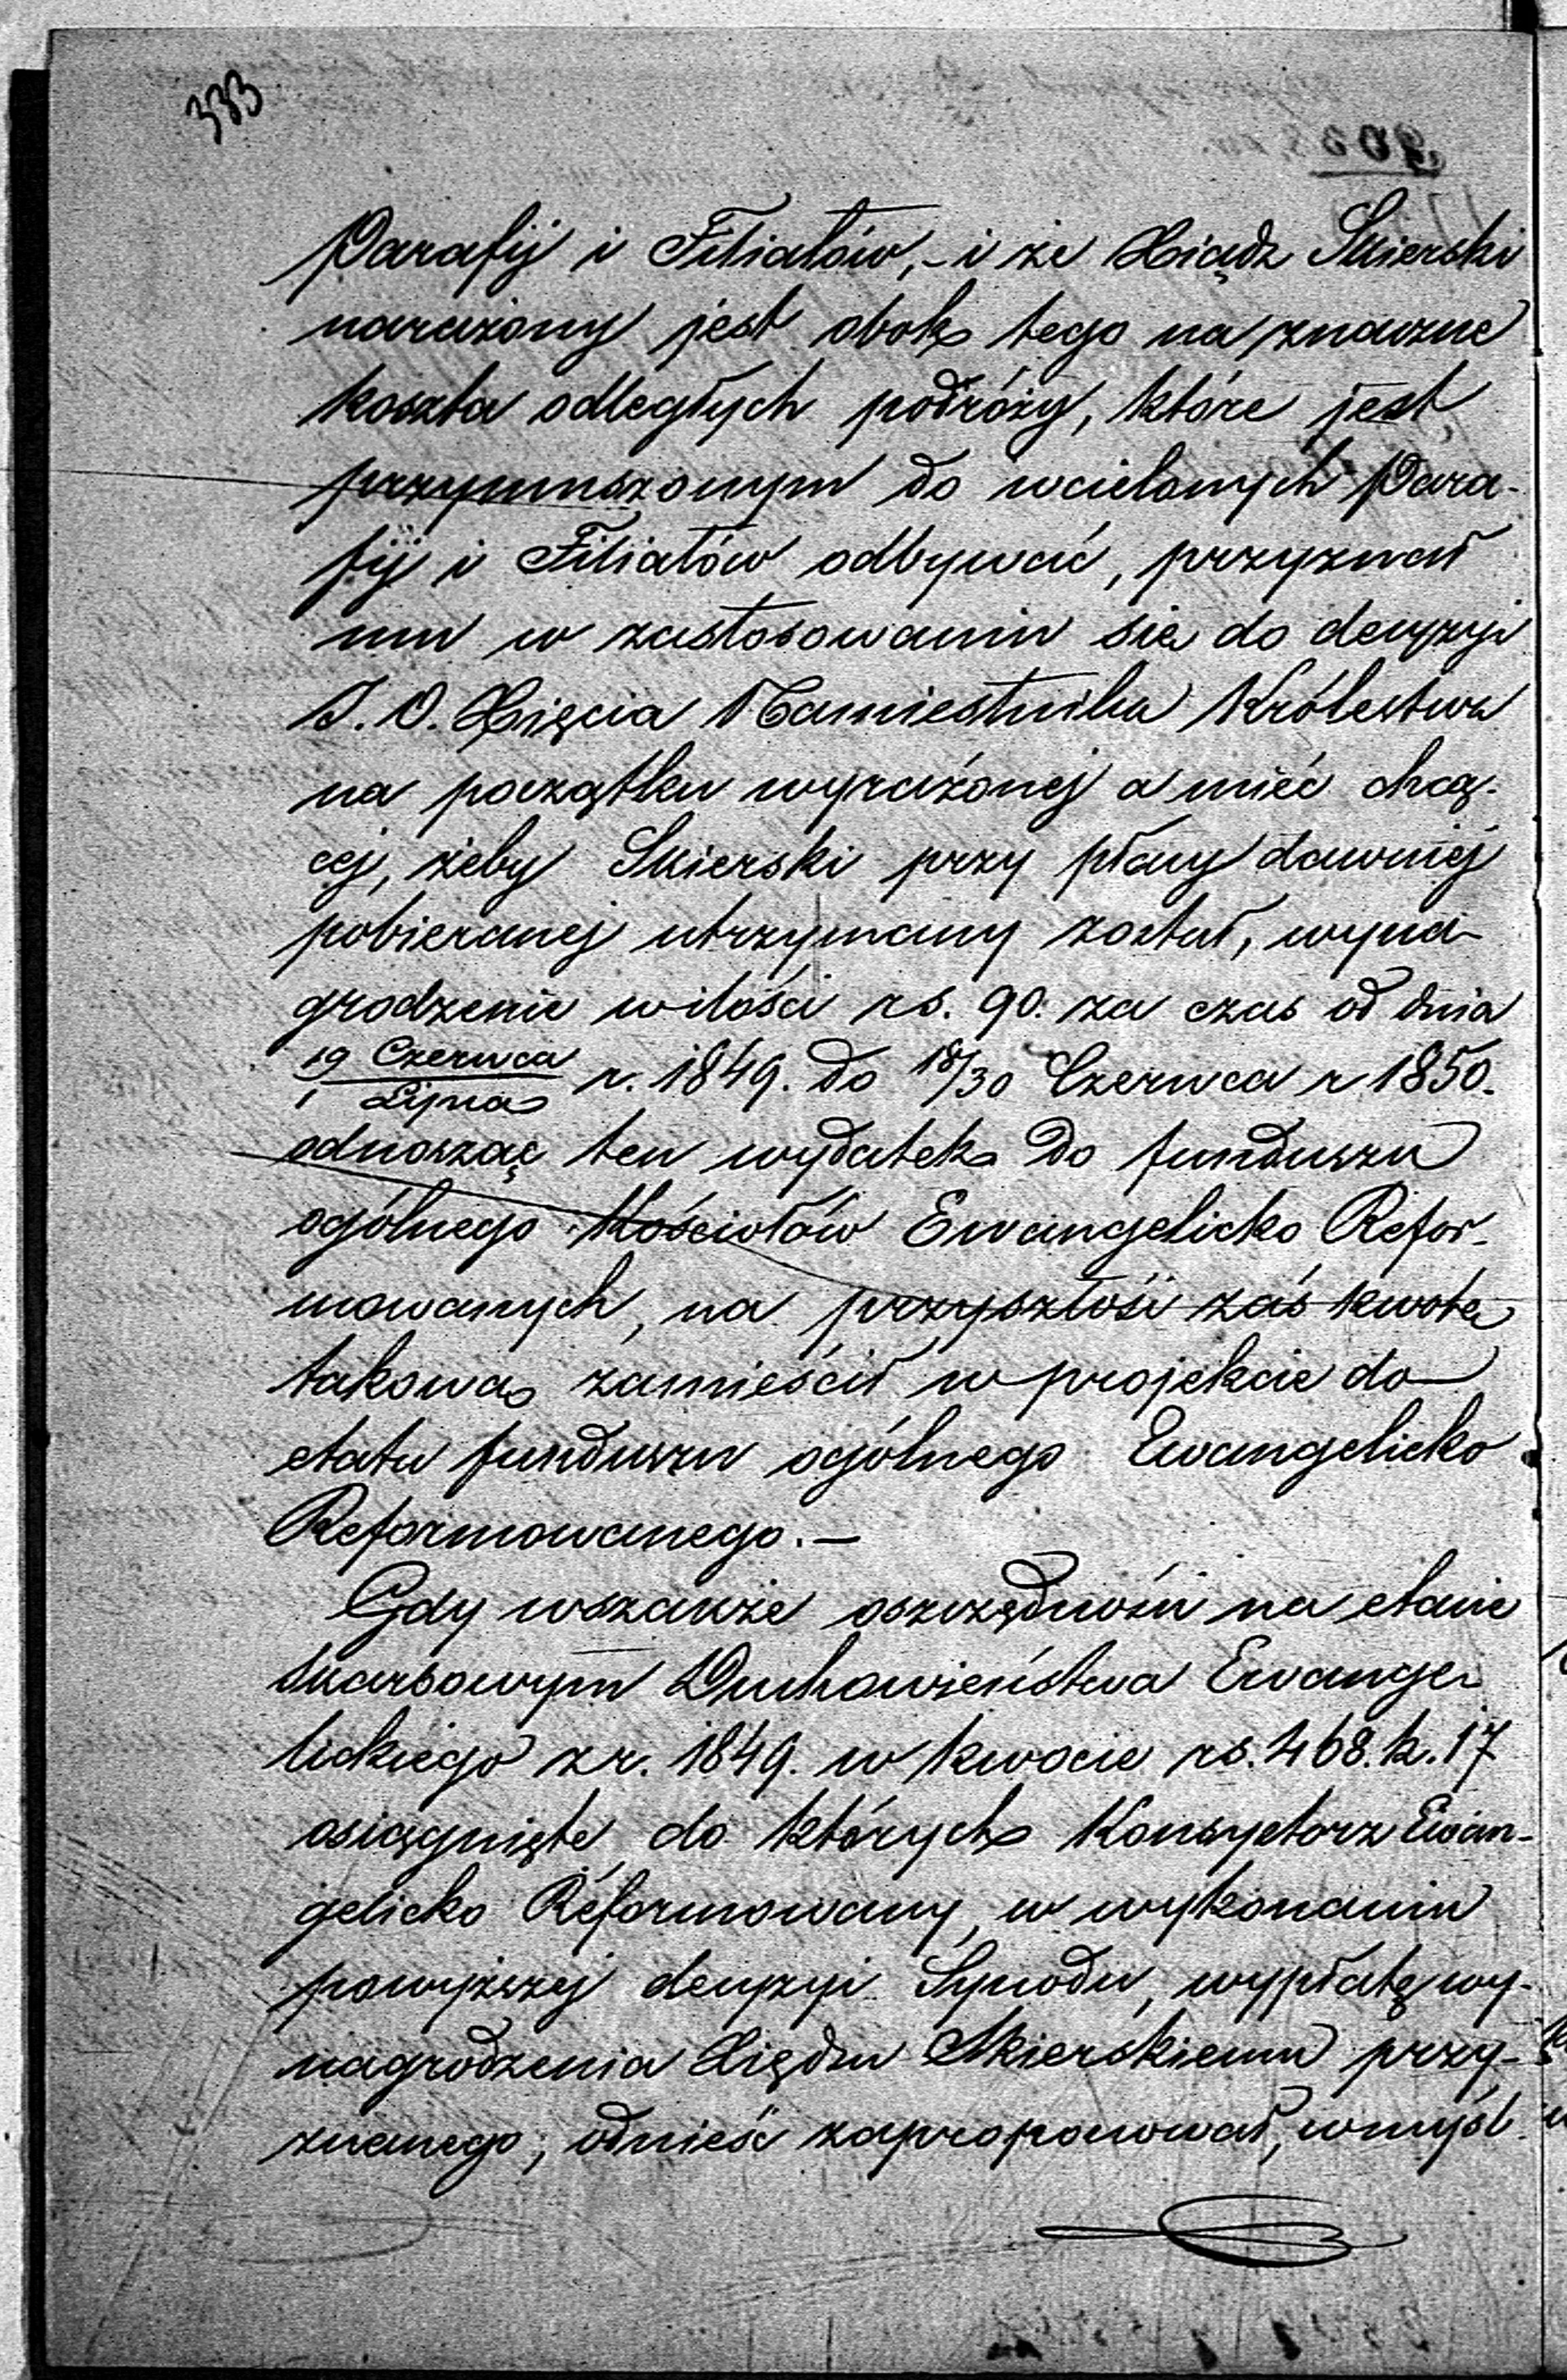 333
Parafij i Filiałów, - i że Xiądz Skierski
narażony jest obok tego na znaczne
koszta odległych podróży, które jest
przymuszonym do wcielonych Para-
fij i Filiałów odbywać, przyznał
mu w zastosowaniu się do decyzyi
J. O. Xięcia Namiestnika Królestwa
na początku wyrażonej a mieć chcą-
cej, żeby Skierski przy płacy dawniej
pobieranej utrzymany został, wyna-
grodzenie w ilości rs. 90. za czas od dnia
19 Czerwca / 1 Lipca r. 1849. do 18/30 Czerwca r 1850.
odnosząc ten wydatek do funduszu
ogólnego Kościołów Ewangelicko Refor-
mowanych, na przyszłość zaś kwotę
takową zamieścił w projekcie do
etatu funduszu ogólnego Ewangelicko
Reformowanego. —
Gdy wszakże oszczędności na etacie
Skarbowym Duchowieństwa Ewange-
lickiego z r. 1849. w kwocie rs. 468. k. 17
osiągnięte do których Konsystorz Ewan-
gelicko Reformowany, w wykonaniu
powyższej decyzyi Synodu, wypłatę wy-
nagrodzenia Xiędzu Skierskiemu przy-
znanego, odnieść zaproponował, wmyśl